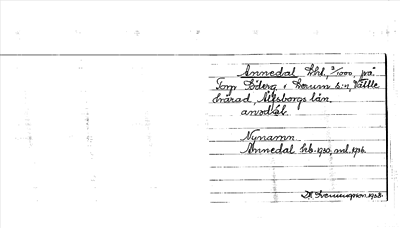 Annedal lht., 3/1000, på
Torp Söderg. i Lerum s:n, Vättle
härad, Älfsborgs län.
anvd
Nynamn
Annedal hb. 1930,
1938.